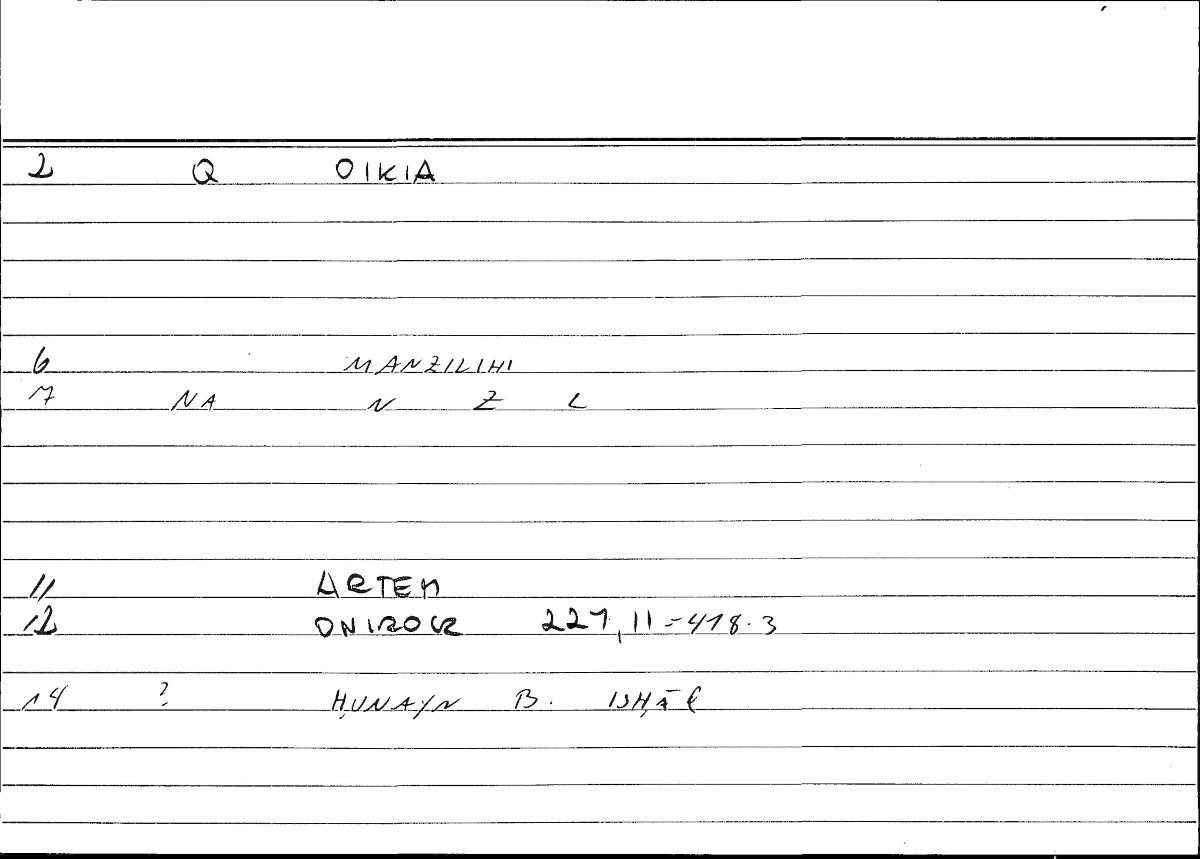 2 Q OIKIA
6 MANZILIHI
7 NA N Z L
11 ARTEM
12 ONIROCR 227,11=418.3
14 ? ḤUNAYN B. ISḤĀQ